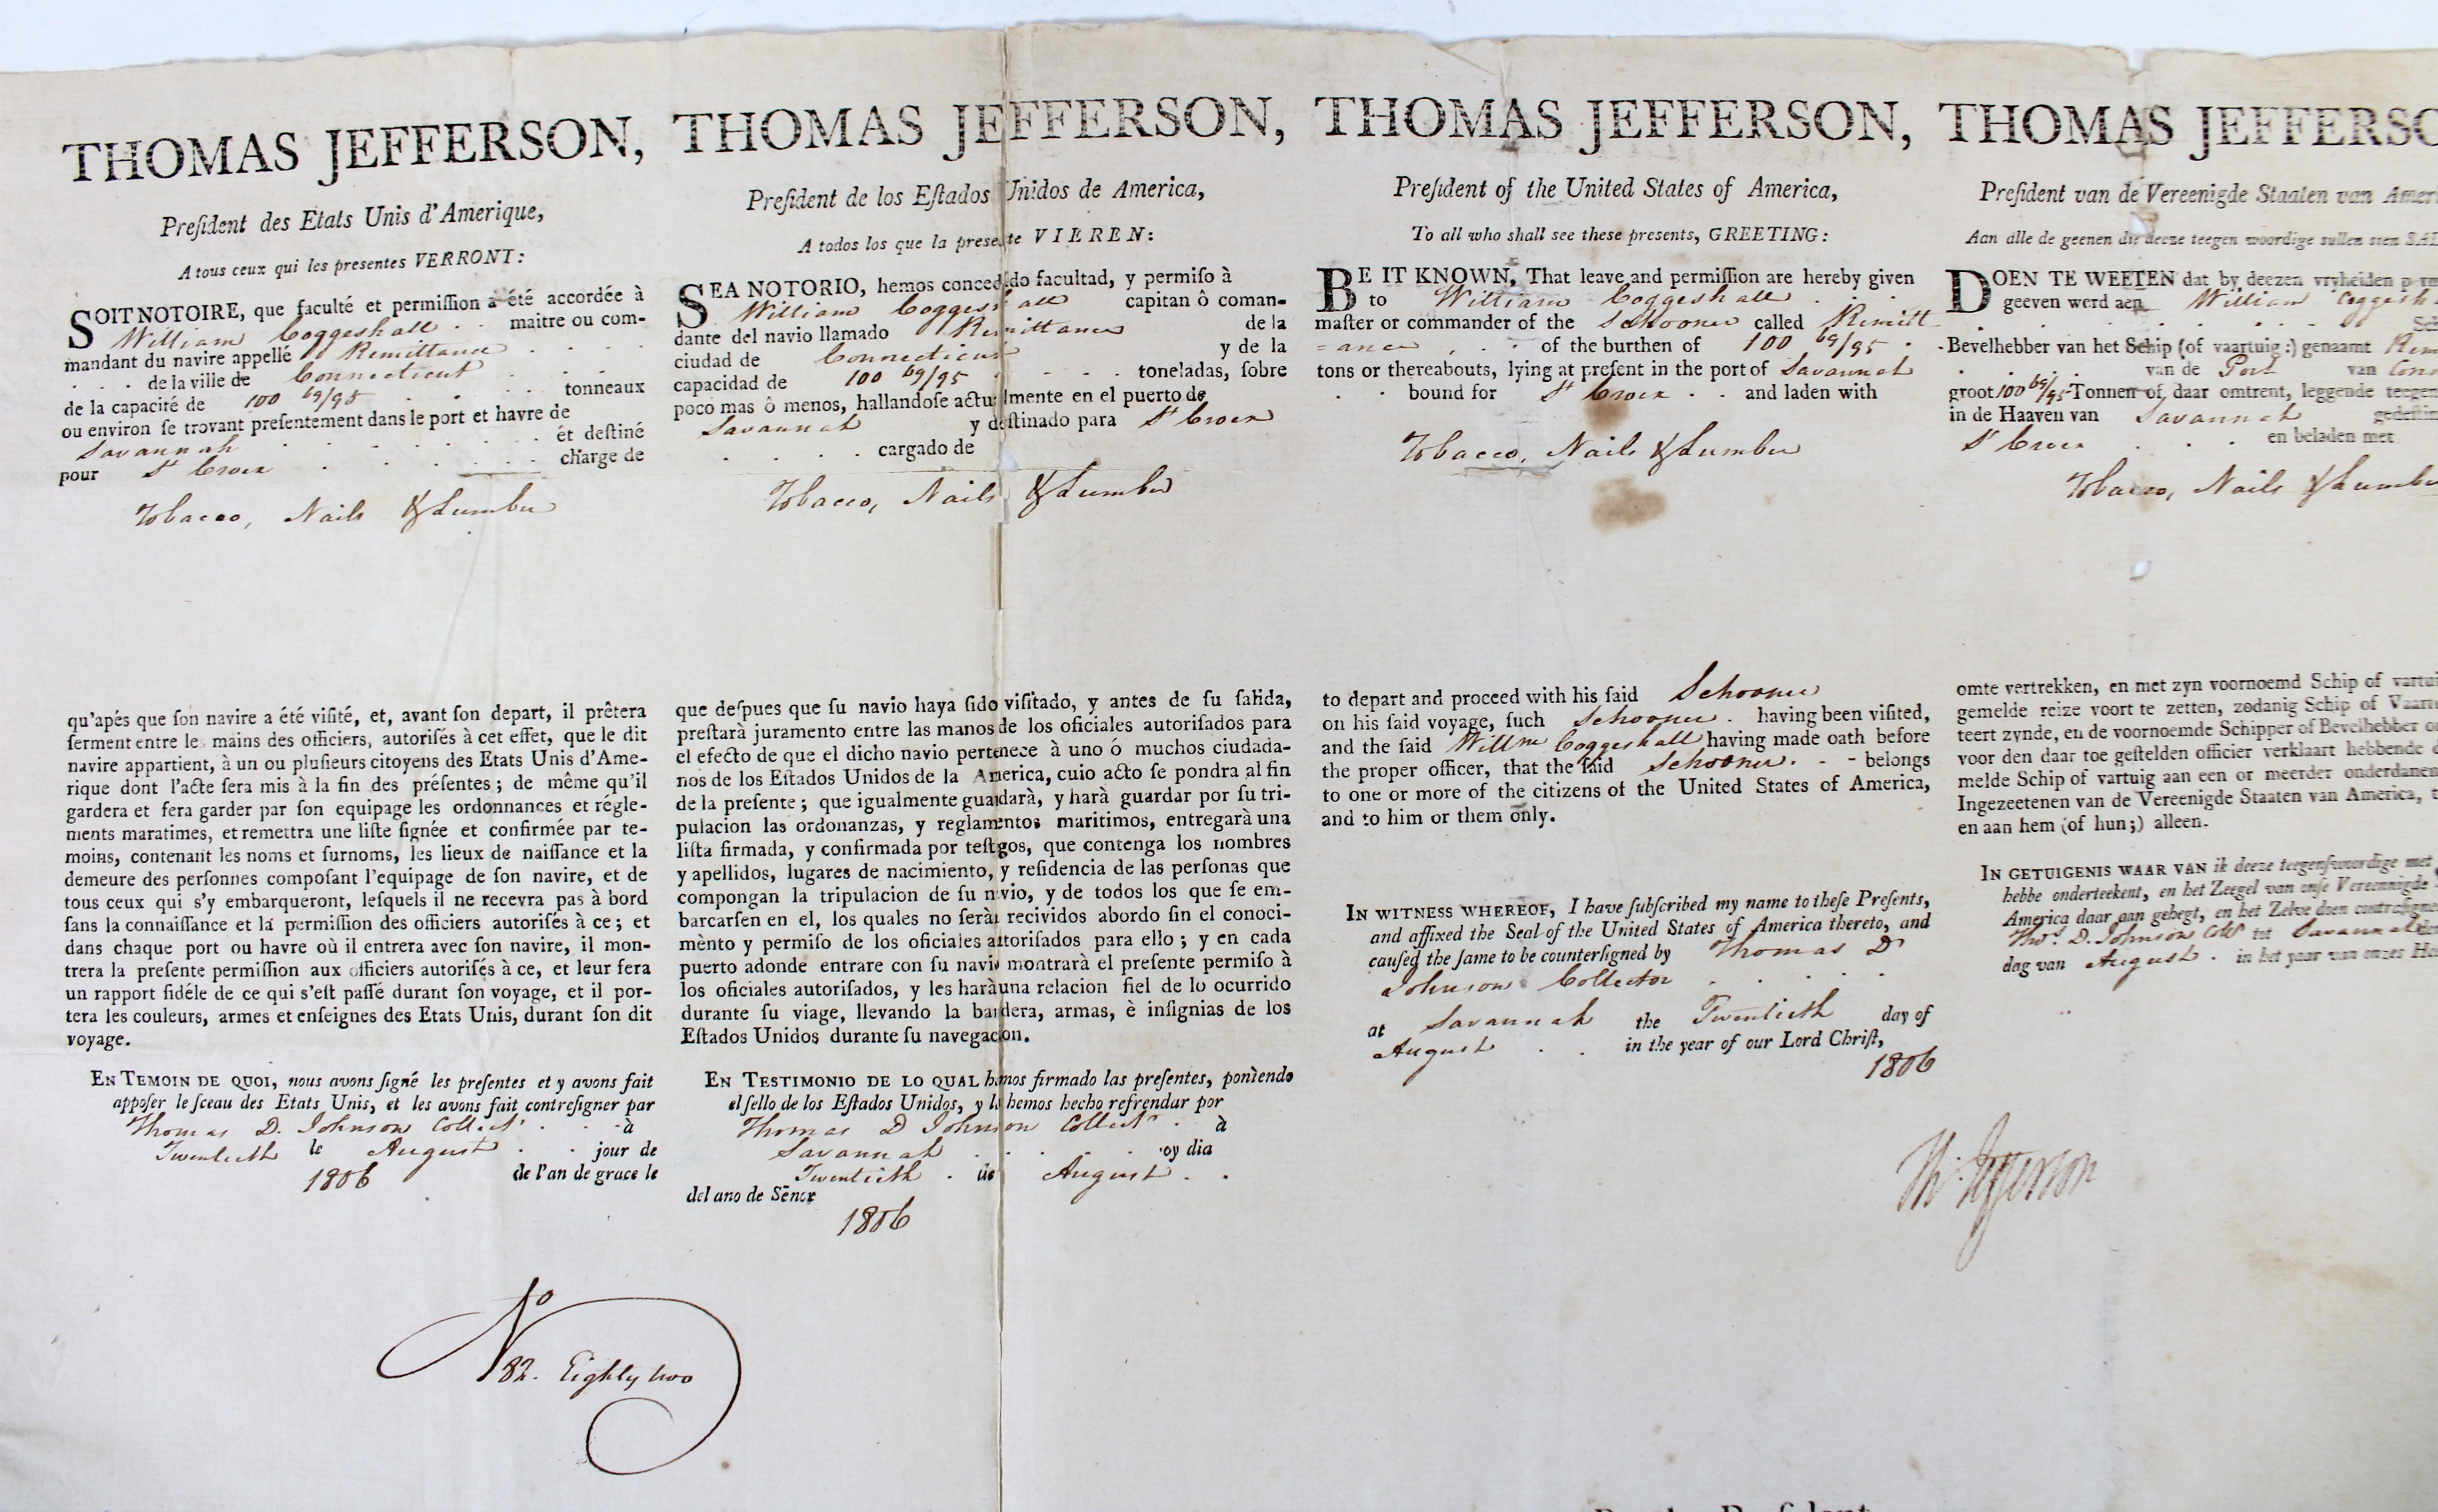 THOMAS JEFFERSON,
Preſident des Etats Unis d'Amerique,
A tous ceux qui les presentes VERRONT:
SOIT NOTOIRE, que faculté et permiſſion a été accordée à
William Coggeshall . . maitre ou com-
mandant du navire appellé Remittance . . . .
. . . de la ville de Connecticut . . .
de la capacité de 100 69/95 . . . tonneaux
ou environ ſe trovant preſentement dans le port et havre de
Savannah . . . . . . ét deſtiné
pour St Croix . . . . . . charge de
Tobacco, Nails & Lumber
qu'apés que ſon navire a été viſité, et, avant ſon depart, il prêtera
ſerment entre les mains des officiers, autoriſés à cet effet, que le dit
navire appartient, à un ou pluſieurs citoyens des Etats Unis d'Ame-
rique dont l'acte ſera mis à la fin des préſentes; de même qu'il
gardera et fera garder par ſon equipage les ordonnances et régle-
ments maratimes, et remettra une liſte ſignée et confirmée par te-
moins, contenant les noms et ſurnoms, les lieux de naiſſance et la
demeure des perſonnes compoſant l'equipage de ſon navire, et de
tous ceux qui s'y embarqueront, leſquels il ne recevra pas à bord
ſans la connaiſſance et la permiſſion des officiers autoriſés à ce; et
dans chaque port ou havre où il entrera avec ſon navire, il mon-
trera la preſente permiſſion aux officiers autoriſés à ce, et leur fera
un rapport fidéle de ce qui s'eſt paſſé durant ſon voyage, et il por-
tera les couleurs, armes et enſeignes des Etats Unis, durant ſon dit
voyage.
EN TEMOIN DE QUOI, nous avons ſigné les preſentes et y avons fait
appoſer le ſceau des Etats Unis, et les avons fait contreſigner par
Thomas D. Johnson Collectr . . à
Twentieth le August . . jour de
1806 de l'an de grace le
No 82. Eighty two
THOMAS JEFFERSON,
Preſident de los Eſtados Unidos de America,
A todos los que la presente VIEREN:
SEA NOTORIO, hemos concedido facultad, y permiſo à
William Coggeshall capitan ô coman-
dante del navio llamado Remittance de la
ciudad de Connecticut y de la
capacidad de 100 69/95 . . . . toneladas, ſobre
poco mas ô menos, hallandoſe actualmente en el puerto de
Savannah y deſtinado para St Croix
. . . . cargado de
Tobacco, Nails & Lumber
que deſpues que ſu navio haya ſido viſitado, y antes de ſu ſalida,
preſtarà juramento entre las manos de los oficiales autoriſados para
el efecto de que el dicho navio pertenece à uno ó muchos ciudada-
nos de los Eſtados Unidos de la America, cuio acto ſe pondra al fin
de la preſente; que igualmente guardarà, y harà guardar por ſu tri-
pulacion las ordonanzas, y reglamentos maritimos, entregarà una
liſta firmada, y confirmada por teſtigos, que contenga los nombres
y apellidos, lugares de nacimiento, y reſidencia de las perſonas que
compongan la tripulacion de ſu navio, y de todos los que ſe em-
barcarſen en el, los quales no ſeràn recividos abordo ſin el conoci-
mènto y permiſo de los oficiales autoriſados para ello; y en cada
puerto adonde entrare con ſu navio montrarà el preſente permiſo à
los oficiales autoriſados, y les harà una relacion fiel de lo ocurrido
durante ſu viage, llevando la bandera, armas, è inſignias de los
Eſtados Unidos durante ſu navegacion.
EN TESTIMONIO DE LO QUAL hemos firmado las preſentes, poniendo
el ſello de los Eſtados Unidos, y lo hemos hecho refrendar por
Thomas D Johnson Collectr . à
Savannah . . . . oy dia
Twentieth . de August . .
del ano de Sēnor
1806
THOMAS JEFFERSON,
Preſident of the United States of America,
To all who shall see these presents, GREETING:
BE IT KNOWN, That leave and permiſſion are hereby given
to William Coggeshall . . .
maſter or commander of the Schooner called Remitt
=ance . . . of the burthen of 100 69/95 .
tons or thereabouts, lying at preſent in the port of Savannah
. . bound for St Croix . . and laden with
Tobacco, Nails & Lumber
to depart and proceed with his ſaid Schooner
on his ſaid voyage, ſuch Schooner . having been viſited,
and the ſaid Willm Coggeshall having made oath before
the proper officer, that the ſaid Schooner . - - belongs
to one or more of the citizens of the United States of America,
and to him or them only.
IN WITNESS WHEREOF, I have ſubſcribed my name to theſe Preſents,
and affixed the Seal of the United States of America thereto, and
cauſed the ſame to be counterſigned by Thomas D
Johnson Collector . . . .
at Savannah the Twentieth day of
August . . in the year of our Lord Chriſt,
1806
Th: Jefferson
THOMAS JEFFERSO
Preſident van de Vereenigde Staaten van Amer
Aan alle de geenen die deeze teegen woordige sullen sien SAL
DOEN TE WEETEN dat by deezen vryheiden perm
geeven werd aen William Coggesh
. . . . . . . Sch
Bevelhebber van het Schip (of vaartuig:) genaamt Rem
. . . van de Port van Conn
groot 100 69/95 Tonnen of, daar omtrent, leggende teegen
in de Haaven van Savannah gedeſtin
St Croix . . . en beladen met
Tobacco, Nails & Lumbe
omte vertrekken, en met zyn voornoemd Schip of vartui
gemelde reize voort te zetten, zodanig Schip of Vaart
teert zynde, en de voornoemde Schipper of Bevelhebber o
voor den daar toe geſtelden officier verklaart hebbende d
melde Schip of vartuig aan een or meerder onderdanen
Ingezeetenen van de Vereenigde Staaten van America, t
en aan hem (of hun;) alleen.
IN GETUIGENIS WAAR VAN ik deeze teegenſwoordige met
hebbe onderteekent, en het Zeegel van onſe Vereenigde
America daar aan gehegt, en het Zelve doen contreſigne
Thos. D. Johnson Collr tot Savannah den
dag van August . in het yaar van onzes He